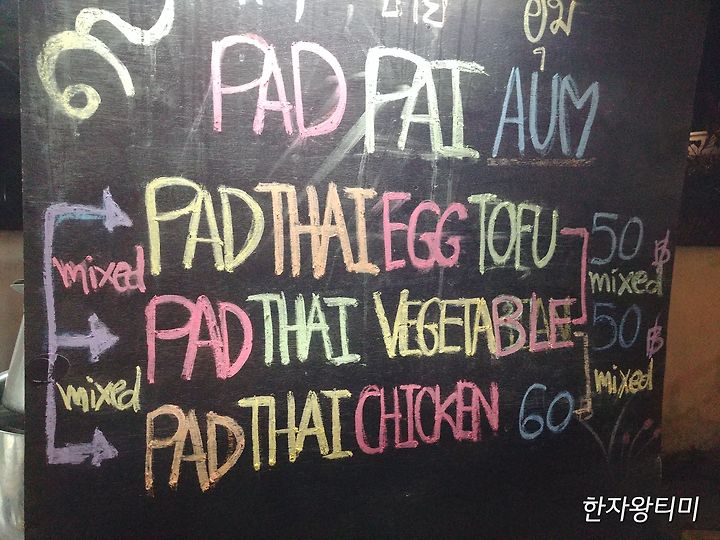 PAD PAI AUM
PAD THAI EGG TOFU 50 ฿
mixed mixed
PAD THAI VEGETABLE 50 ฿
mixed mixed
PAD THAI CHICKEN 60
한자왕티미